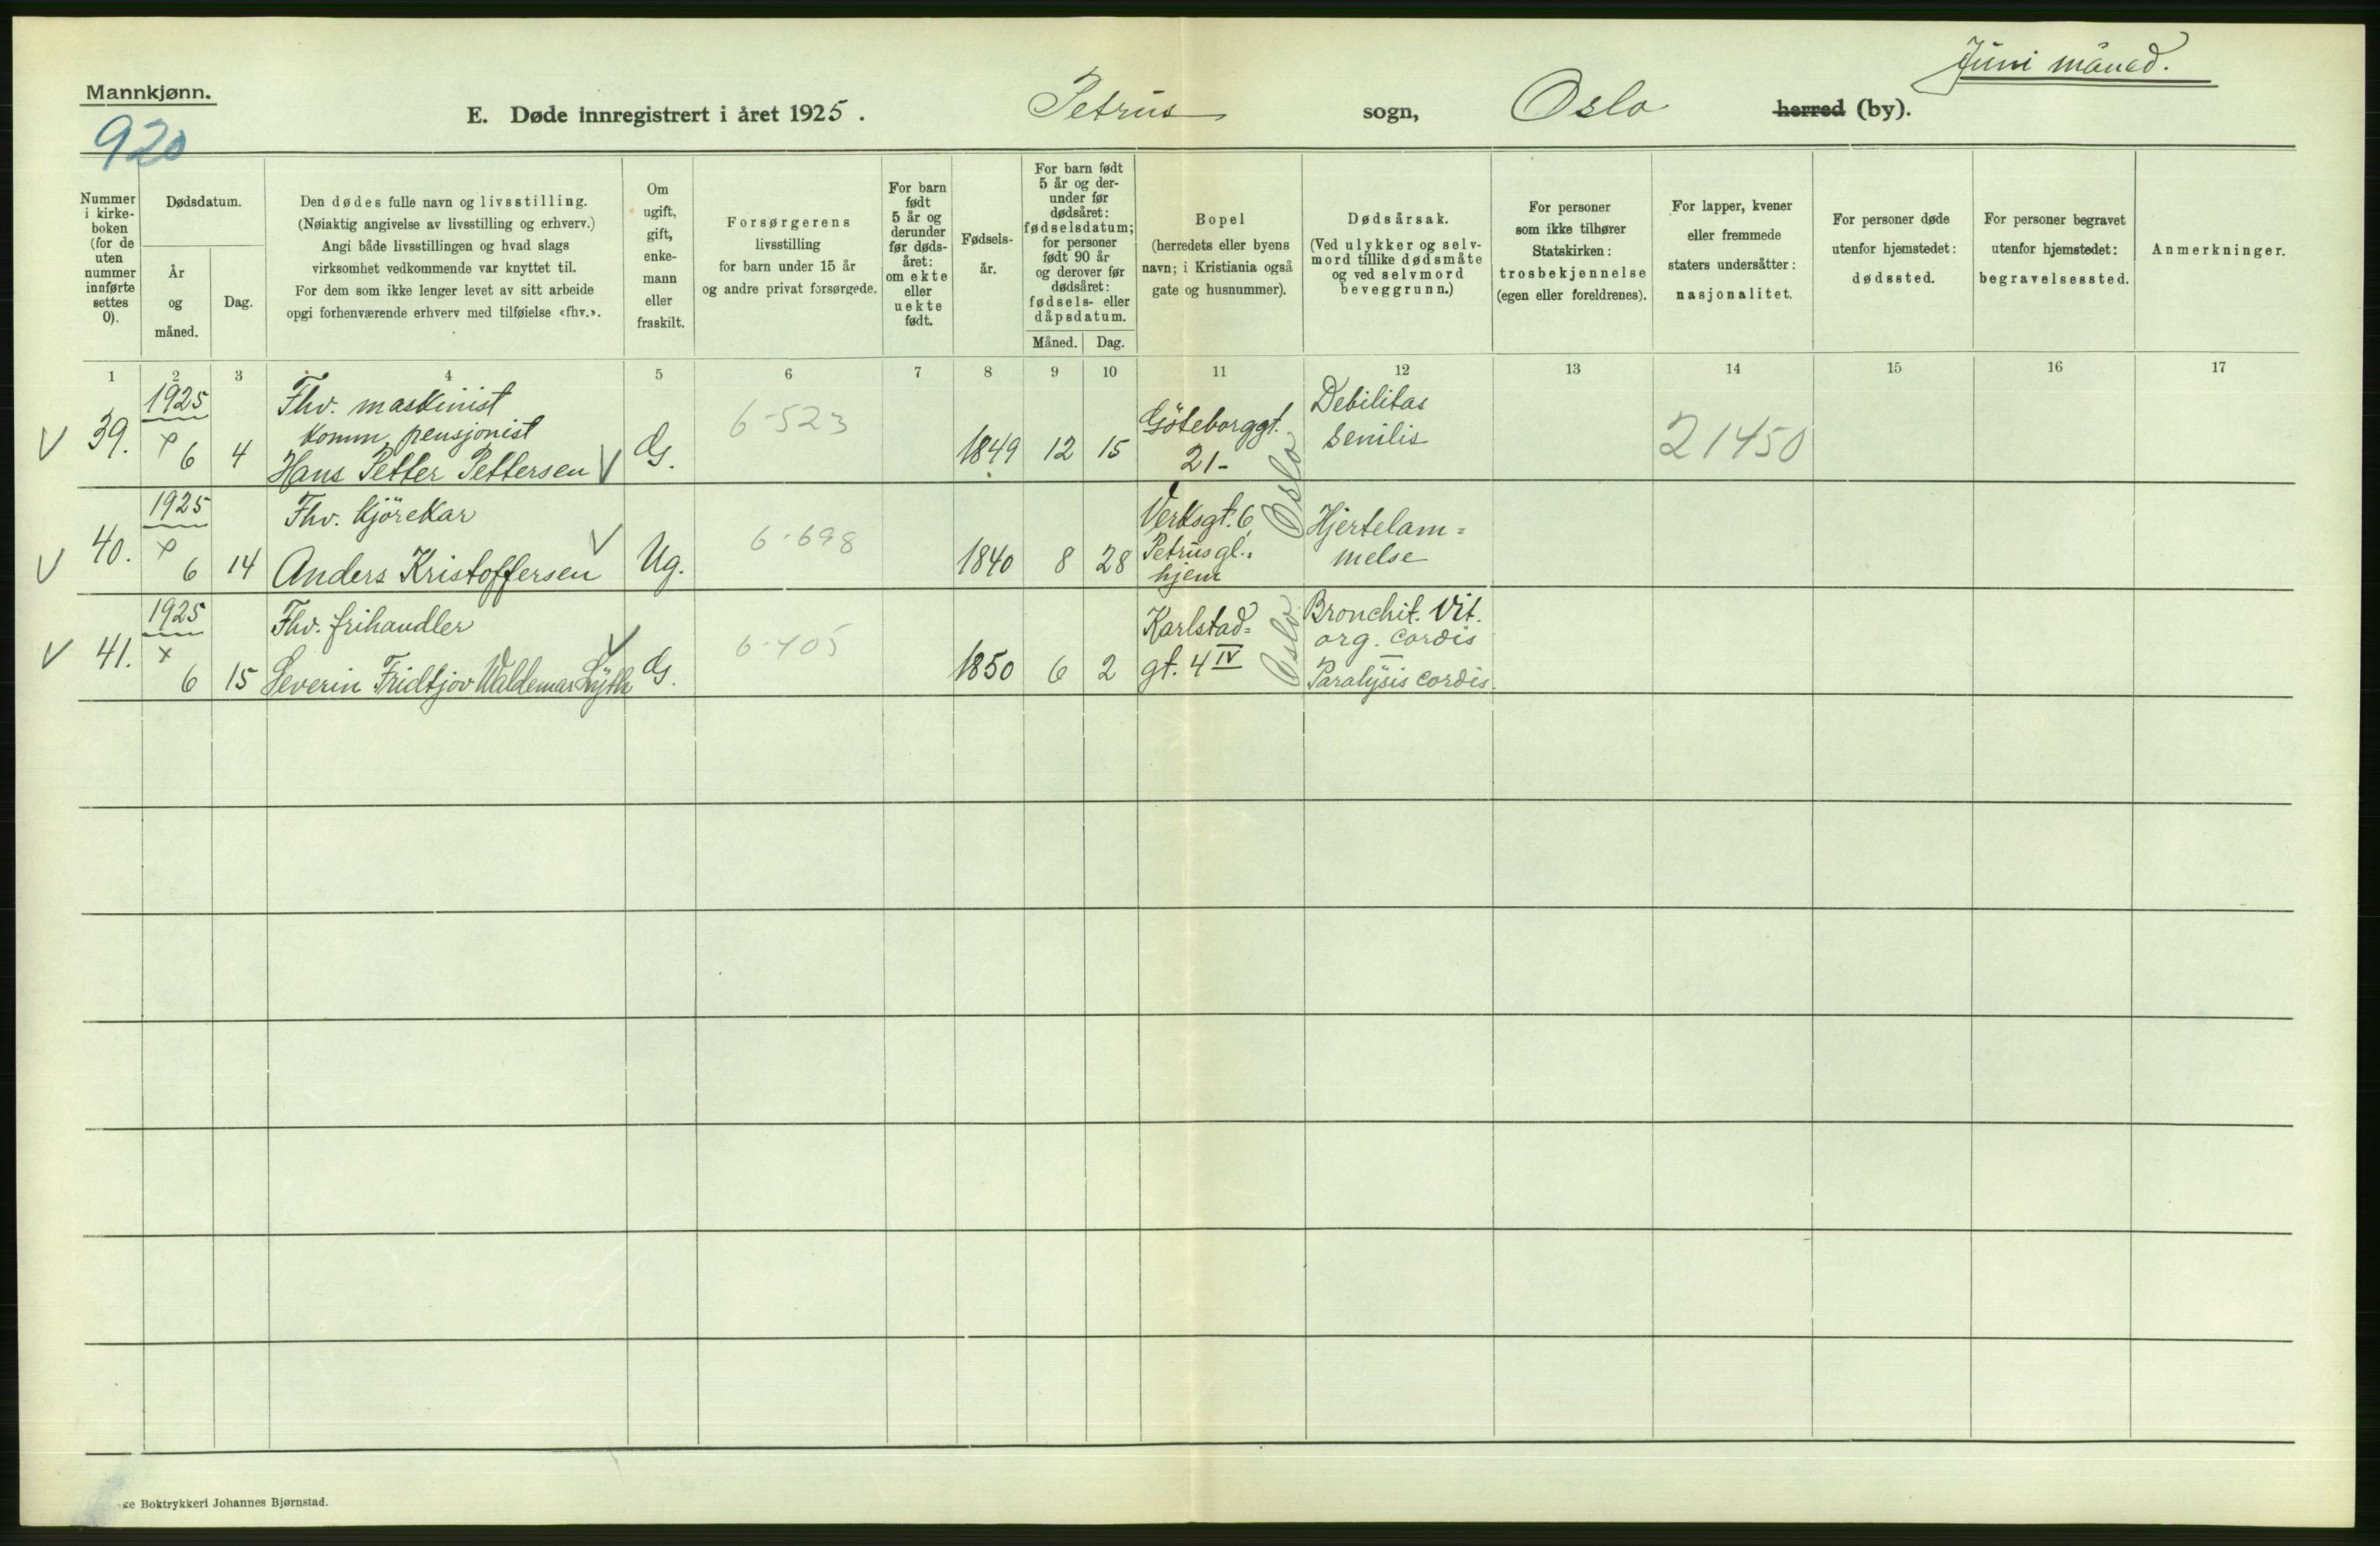 Juni måned.
Mannkjønn.
920
E. Døde innregistrert i året 1925. Petrus sogn, Oslo herred (by).
Nummer i kirke-boken (for de uten nummer innførte settes 0).
Dødsdatum.
År og måned.
Dag.
Den dødes fulle navn og livsstilling.
(Nøiaktig angivelse av livsstilling og erhverv.)
Angi både livsstillingen og hvad slags
virksomhet vedkommende var knyttet til.
For dem som ikke lenger levet av sitt arbeide
opgi forhenværende erhverv med tilføielse «fhv.».
Om ugift, gift, enke-mann eller fraskilt.
Forsørgerens
livsstilling
for barn under 15 år
og andre privat forsørgede.
For barn født 5 år og derunder før døds-året: om ekte eller uekte født.
Fødsels-år.
For barn født 5 år og der-under før dødsåret: fødselsdatum; for personer født 90 år og derover før dødsåret: fødsels- eller dåpsdatum.
Måned.
Dag.
Bopel
(herredets eller byens
navn; i Kristiania også
gate og husnummer).
Dødsårsak.
(Ved ulykker og selv-
mord tillike dødsmåte
og ved selvmord
beveggrunn.)
For personer
som ikke tilhører
Statskirken:
trosbekjennelse
(egen eller foreldrenes).
For lapper, kvener
eller fremmede
staters undersåtter:
nasjonalitet.
For personer døde
utenfor hjemstedet:
dødssted.
For personer begravet
utenfor hjemstedet:
begravelsessted.
Anmerkninger.
1 2 3 4 5 6 7 8 9 10 11 12 13 14 15 16 17
V 39. 1925 6 4
Fhv. maskinist
Komm. pensjonist
Hans Petter Pettersen V
G. 6-523 1849 12 15
Göteborggt.
21- Oslo
Debilitas
senilis
21450
V 40. 1925 6 14
Fhv. kjörekar
Anders Kristoffersen V
Ug. 6-698 1840 8 28
Verksgt. 6
Petrus gl.
hjem
Hjertelam=
melse
V 41. 1925 6 15
Fhv. frihandler
Severin Fridtjov Waldemar Lyth V
G. 6-405 1850 6 2
Karlstad=
gt. 4 IV Oslo
Bronchit. Vit.
org. cordis
Paralysis cordis.
ke Boktrykkeri Johannes Bjørnstad.